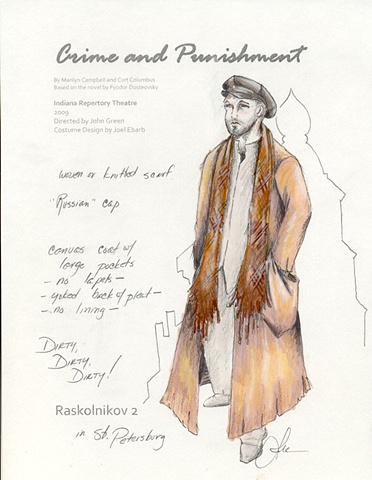 Crime and Punishment
By Marilyn Campbell and Curt Columbus
Based on the novel by Fyodor Dostoevsky
Indiana Repertory Theatre
2009
Directed by John Green
Costume Design by Joel Ebarb
woven or knitted scarf
"Russian" cap
canvas coat w/
large pockets
- no lapels -
- yoked back w/ pleat -
- no lining -
Dirty,
Dirty,
Dirty!
Raskolnikov 2
in St. Petersburg